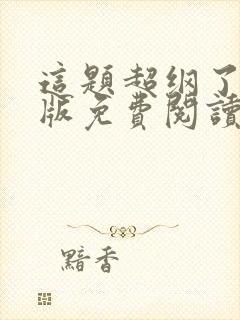 這題超綱了
版免費閱讀
黯香